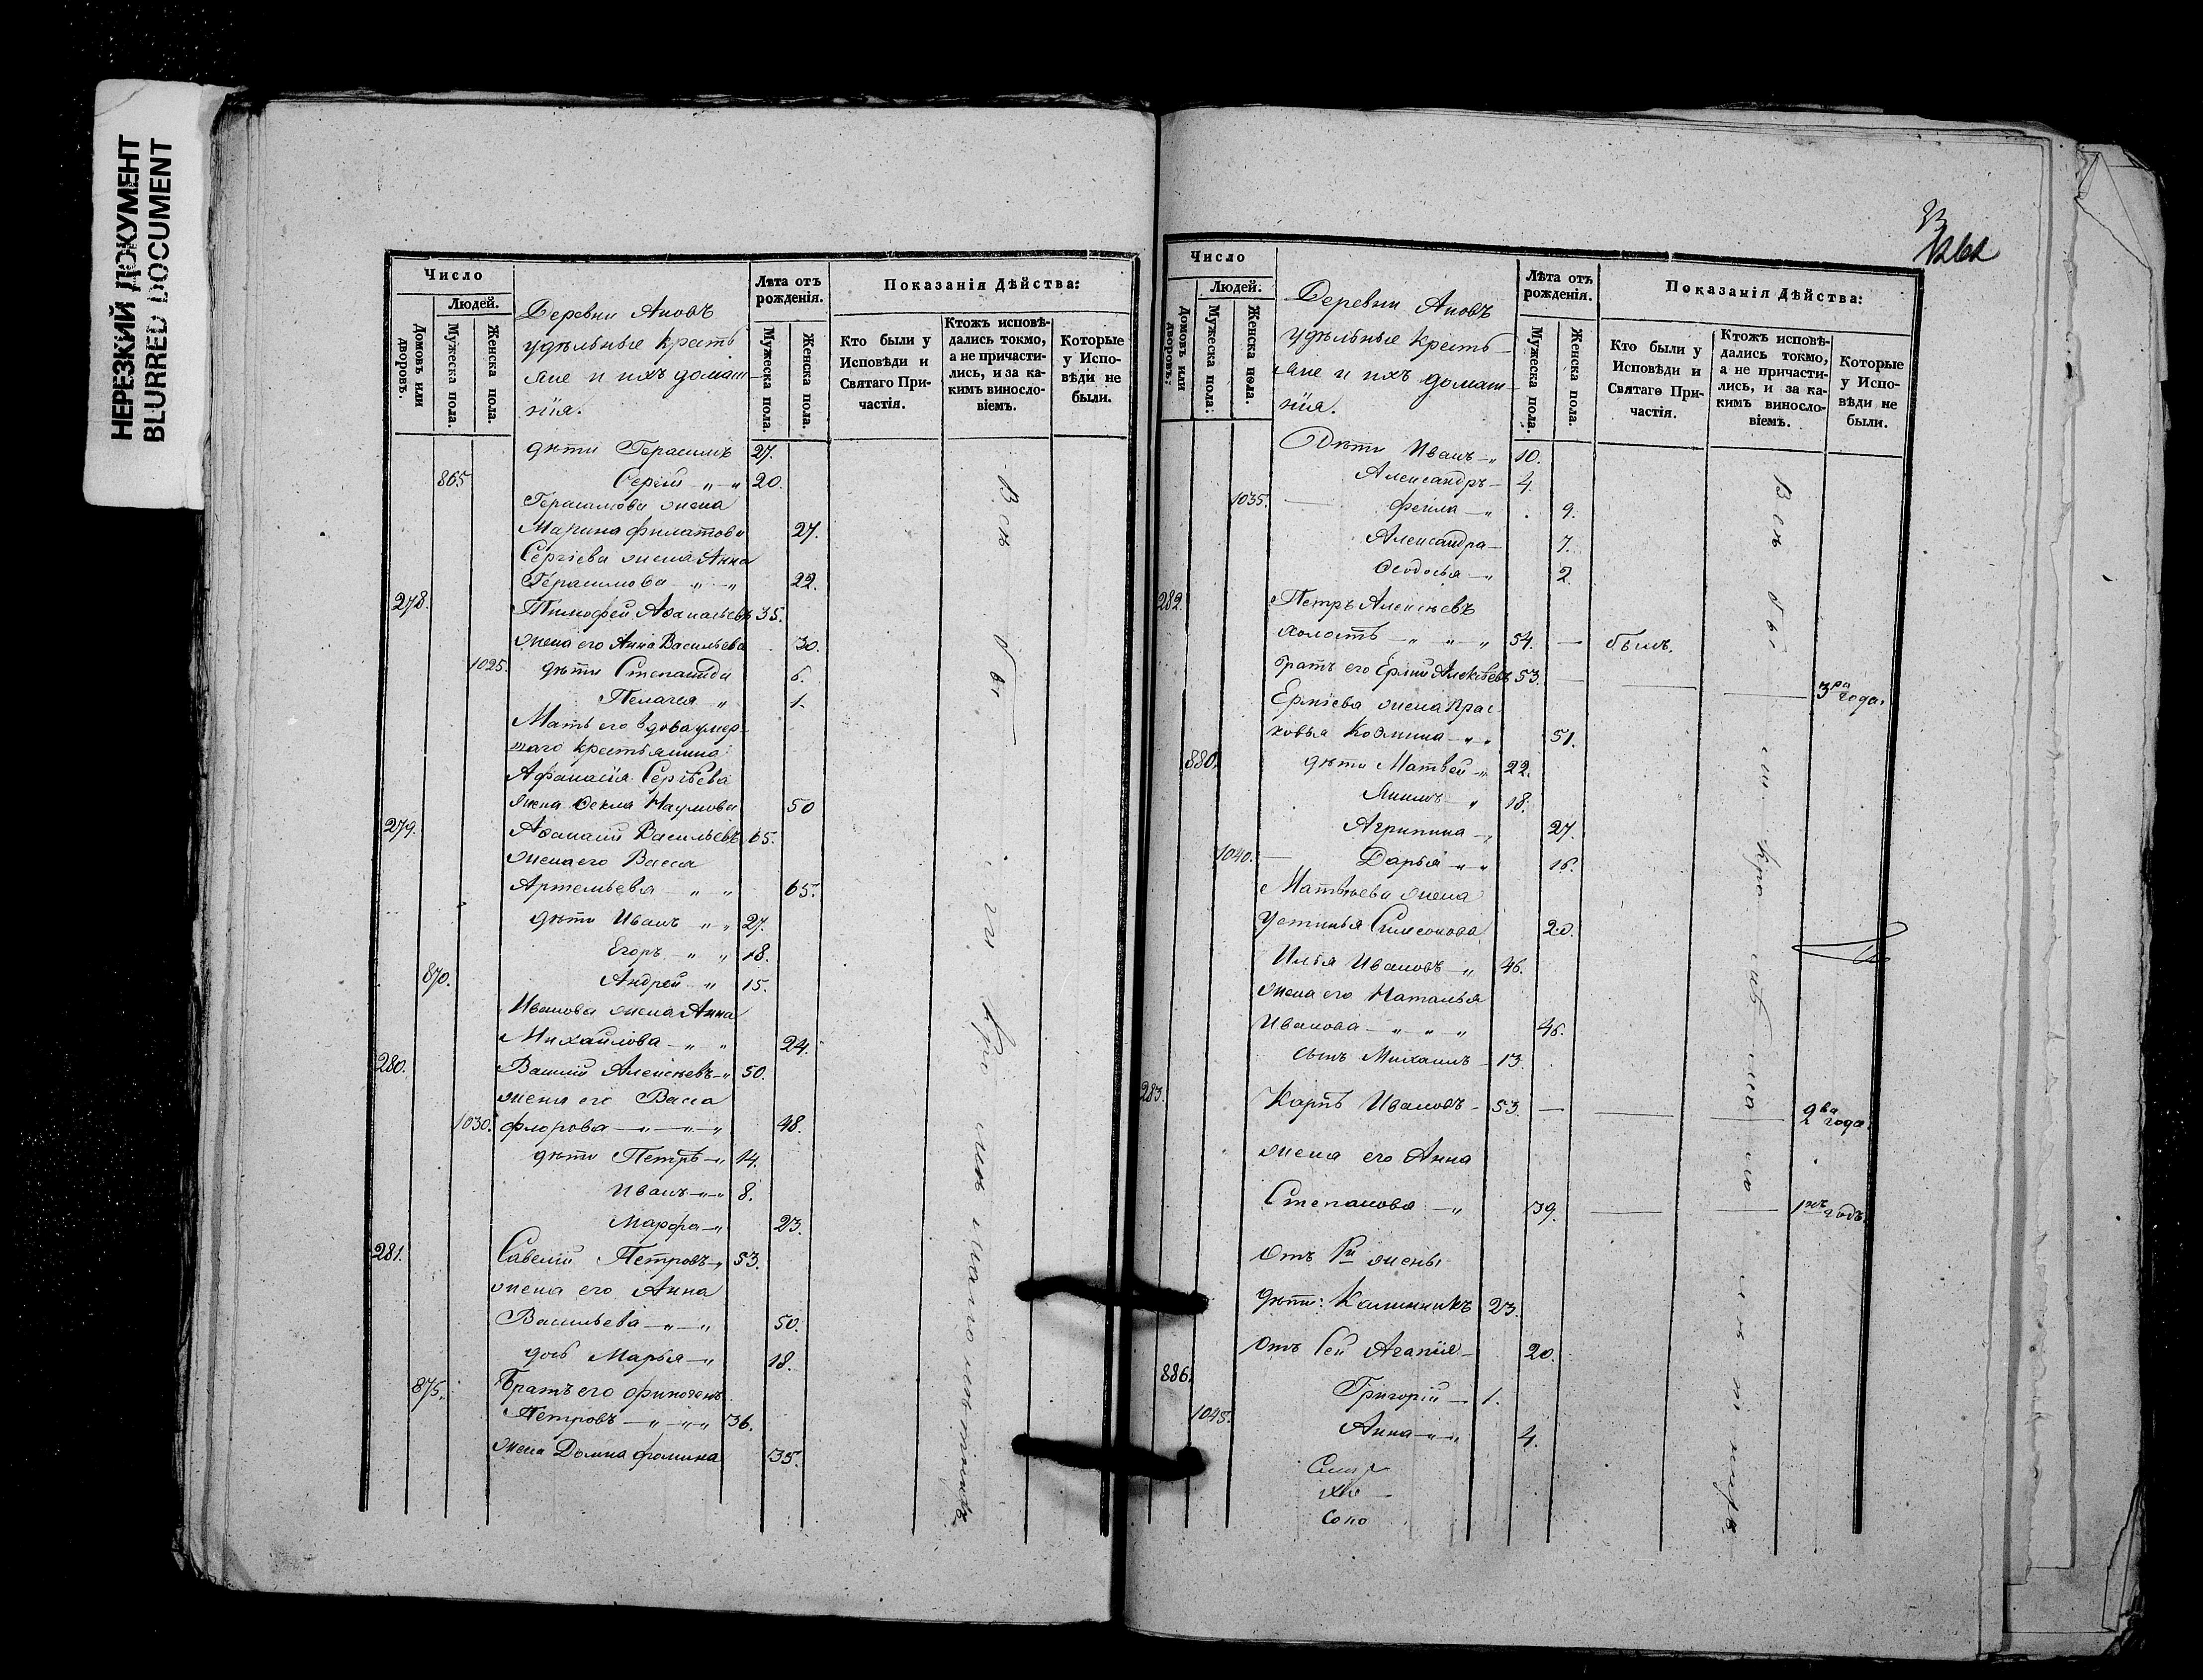 НЕРЕЗКИЙ ДОКУМЕНТ
BLURRED DOCUMENT
Число
Людей.
Домовъ или дворовъ.
Мужеска пола.
Женска пола.
Деревни Ановъ
удѣльные кресть
яне и ихъ домаш-
нія.
Лѣта отъ рожденія.
Мужеска пола.
Женска пола.
Показанія Дѣйства:
Кто были у Исповѣди и Святаго При-частія.
Ктожъ исповѣ-дались токмо, а не причасти-лись, и за ка-кимъ виносло-віемъ.
Которые у Испо-вѣди не были.
дѣти Герасимъ 27.
865 Сергій 20.
Герасимова жена
Марина Филатова 27.
Сергіева жена Анна
Герасимова 22.
278. Тимофей Аѳанасьевъ 35.
жена его Анна Васильева 30.
1025. дѣти Степанида 6.
Пелагея 1.
Мать его вдова умер-
шаго крестьянина
Афанасія Сергѣева
жена Ѳекла Наумова 50
279. Аѳанасій Васильевъ 65.
жена его Васса
Артемьева 65.
дѣти Иванъ 27.
Егоръ 18.
870. Андрей 15.
Иванова жена Анна
Михайлова 24.
280. Василій Алексѣевъ 50.
жена его Васса
1030. Флорова 48.
дѣти Петръ 14.
Иванъ 8.
Марфа 23.
281. Савелій Петровъ 53.
жена его Анна
Васильева 50.
дочь Марья 18.
875. Братъ его Финогенъ
Петровъ 36.
жена Домна Фомина 35.
Всѣ бы
кро мѣ мало лѣтнихъ
33
262
Число
Людей.
Домовъ или дворовъ:
Мужеска пола:
Женска пола.
Деревни Ановъ
удѣльные кресть-
яне и ихъ домаш-
нія.
Лѣта отъ рожденія.
Мужеска пола.
Женска пола.
Показанія Дѣйства:
Кто были у Исповѣди и Святаго При-частія.
Ктожъ исповѣ-дались токмо, а не причасти-лись, и за ка-кимъ виносло-віемъ.
Которые у Испо-вѣди не были.
Дѣти Иванъ 10.
Александръ 4.
1035. Ѳекла 9.
Александра 7.
Ѳеодосья 2.
282. Петръ Алексѣевъ
холостъ 54. былъ.
братъ его Ермій Алексѣевъ 53. 3ри года.
Ерміева жена Прас
ковья Козмина 51.
880. дѣти Матвей 22.
Якимъ 18.
Агрипина 27.
1040. Дарья 16.
Матвѣева жена
Устинья Симеонова 20.
Илья Ивановъ 46.
жена его Наталья
Иванова 46.
сынъ Михаилъ 13.
283. Карпъ Ивановъ 53. 2ва года.
жена его Анна
Степанова 39. 1нъ годъ.
Отъ 1й жены
дѣти: Калинникъ 23.
Отъ сей Агапія 20.
886. Григорій 1.
1045. Анна 4.
Всѣ бы